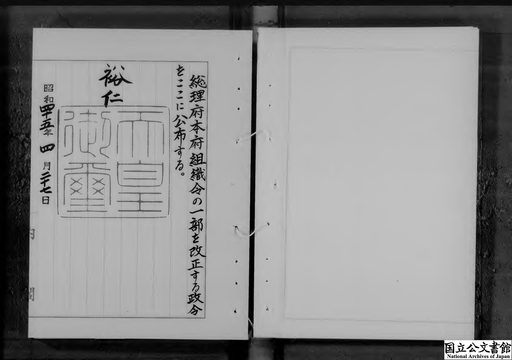 総理府本府組織令の一部を改正する政令
をここに公布する。
裕仁
天皇
御璽
昭和四十五年四月二十七日
内閣
国立公文書館
National Archives of Japan